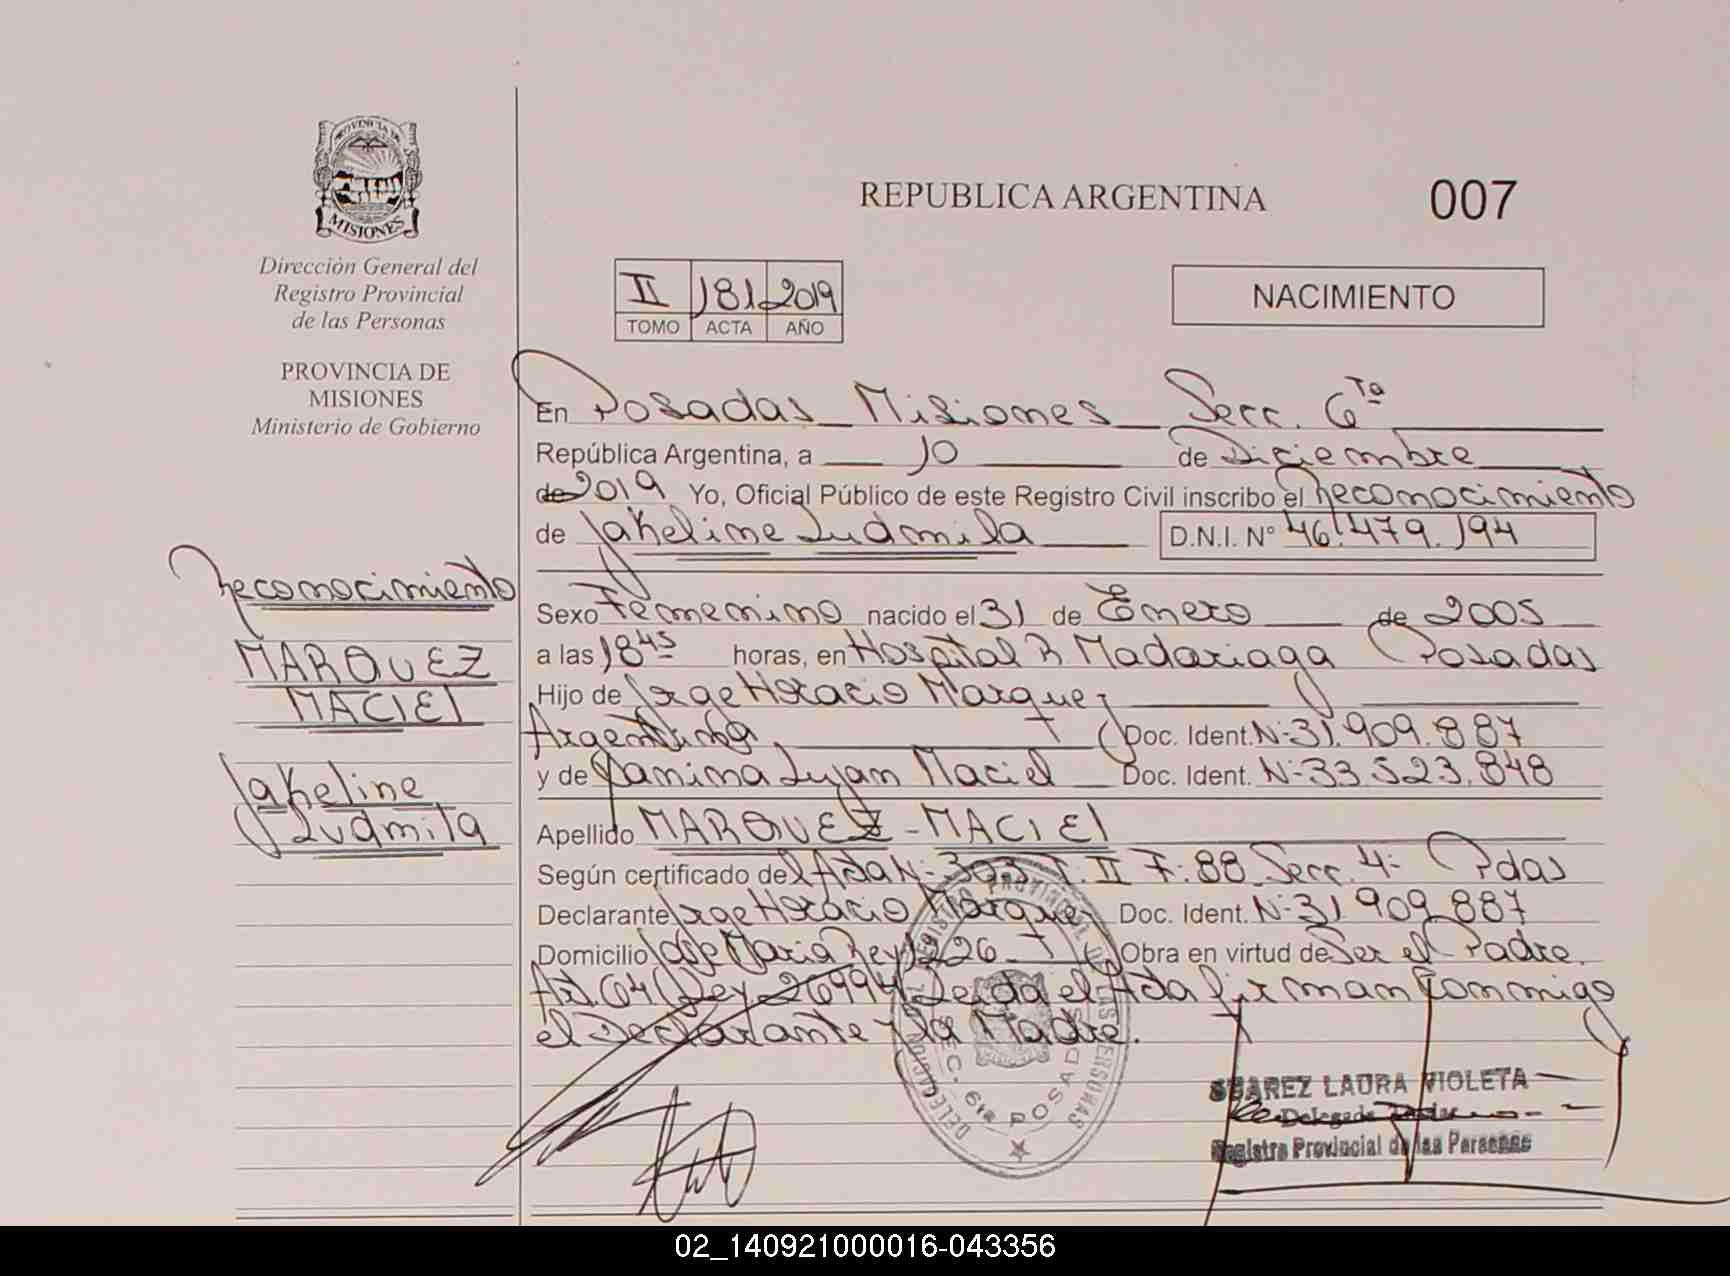 PROVINCIA DE
MISIONES
Dirección General del
Registro Provincial
de las Personas
PROVINCIA DE
MISIONES
Ministerio de Gobierno
REPUBLICA ARGENTINA
007
II 181 2019
TOMO ACTA AÑO
NACIMIENTO
En Posadas Misiones Secc. 6ta
República Argentina, a 10 de Diciembre
de 2019 Yo, Oficial Público de este Registro Civil inscribo el Reconocimiento
de Jakeline Ludmila D.N.I. N° 46.479.194
Reconocimiento
MARQUEZ
MACIEL
Jakeline
Ludmila
Sexo Femenino nacido el 31 de Enero de 2005
a las 18 45 horas, en Hospital R. Madariaga Posadas
Hijo de Jorge Horacio Marquez
Argentino Doc. Ident. N-31.909.887
y de Yanina Lujan Maciel Doc. Ident. N-33.523.848
Apellido MARQUEZ - MACIEL
Según certificado del Acta N- 303 T. II F: 88 Secc. 4- Pdas
Declarante Jorge Horacio Marquez Doc. Ident. N-31 909 887
Domicilio Jose Maria Rey 1226 Obra en virtud de Ser el Padre.
Art. 64 Ley 26994 Leida el Acta firman Conmmigo
el Declarante y la Madre.
DELEGACION REGISTRO PROVINCIAL DE LAS PERSONAS
SEC. 6ta POSADAS
SUAREZ LAURA VIOLETA
Delegada
Registro Provincial de las Personas
02_140921000016-043356